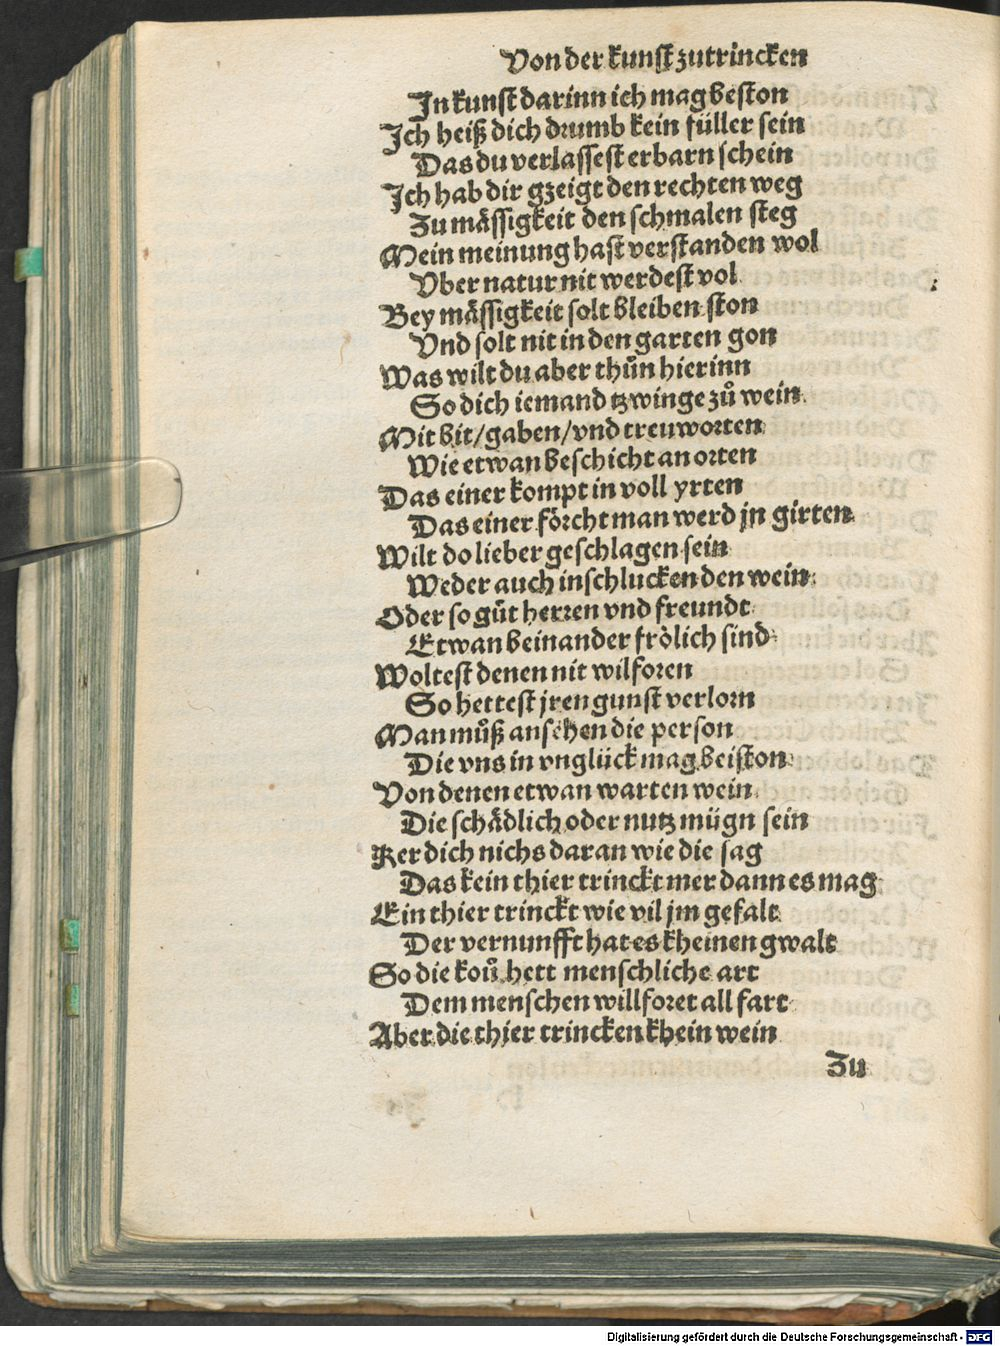 Von der kunst zutrincken
In kunst darinn ich mag beston
Ich heiß dich drumb kein füller sein
Das du verlassest erbarn schein
Ich hab dir gzeigt den rechten weg
Zu mässigkeit den schmalen steg
Mein meinung hast verstanden wol
Vber natur nit werdest vol
Bey mässigkeit solt bleiben ston
Vnd solt nit in den garten gon
Was wilt du aber thůn hierinn
So dich iemand tzwinge zů wein.
Mit bit/gaben/vnd treuworten
Wie etwan beschicht an orten
Das einer kompt in voll yrten
Das einer förcht man werd jn girten
Wilt do lieber geschlagen sein
Weder auch inschlucken den wein.
Oder so gůt herren vnd freundt
Etwan beinander frölich sind
Woltest denen nit wilforen
So hettest jren gunst verlorn
Man můß ansehen die person
Die vns in vnglück mag beiston
Von denen etwan warten wein.
Die schädlich oder nutz mügn sein
Ker dich nichs daran wie die sag
Das kein thier trinckt mer dann es mag
Ein thier trinckt wie vil jm gefalt
Der vernunfft hat es kheinen gwalt
So die koů hett menschliche art
Dem menschen willforet all fart
Aber die thier trincken khein wein
Zu
Digitalisierung gefördert durch die Deutsche Forschungsgemeinschaft - DFG